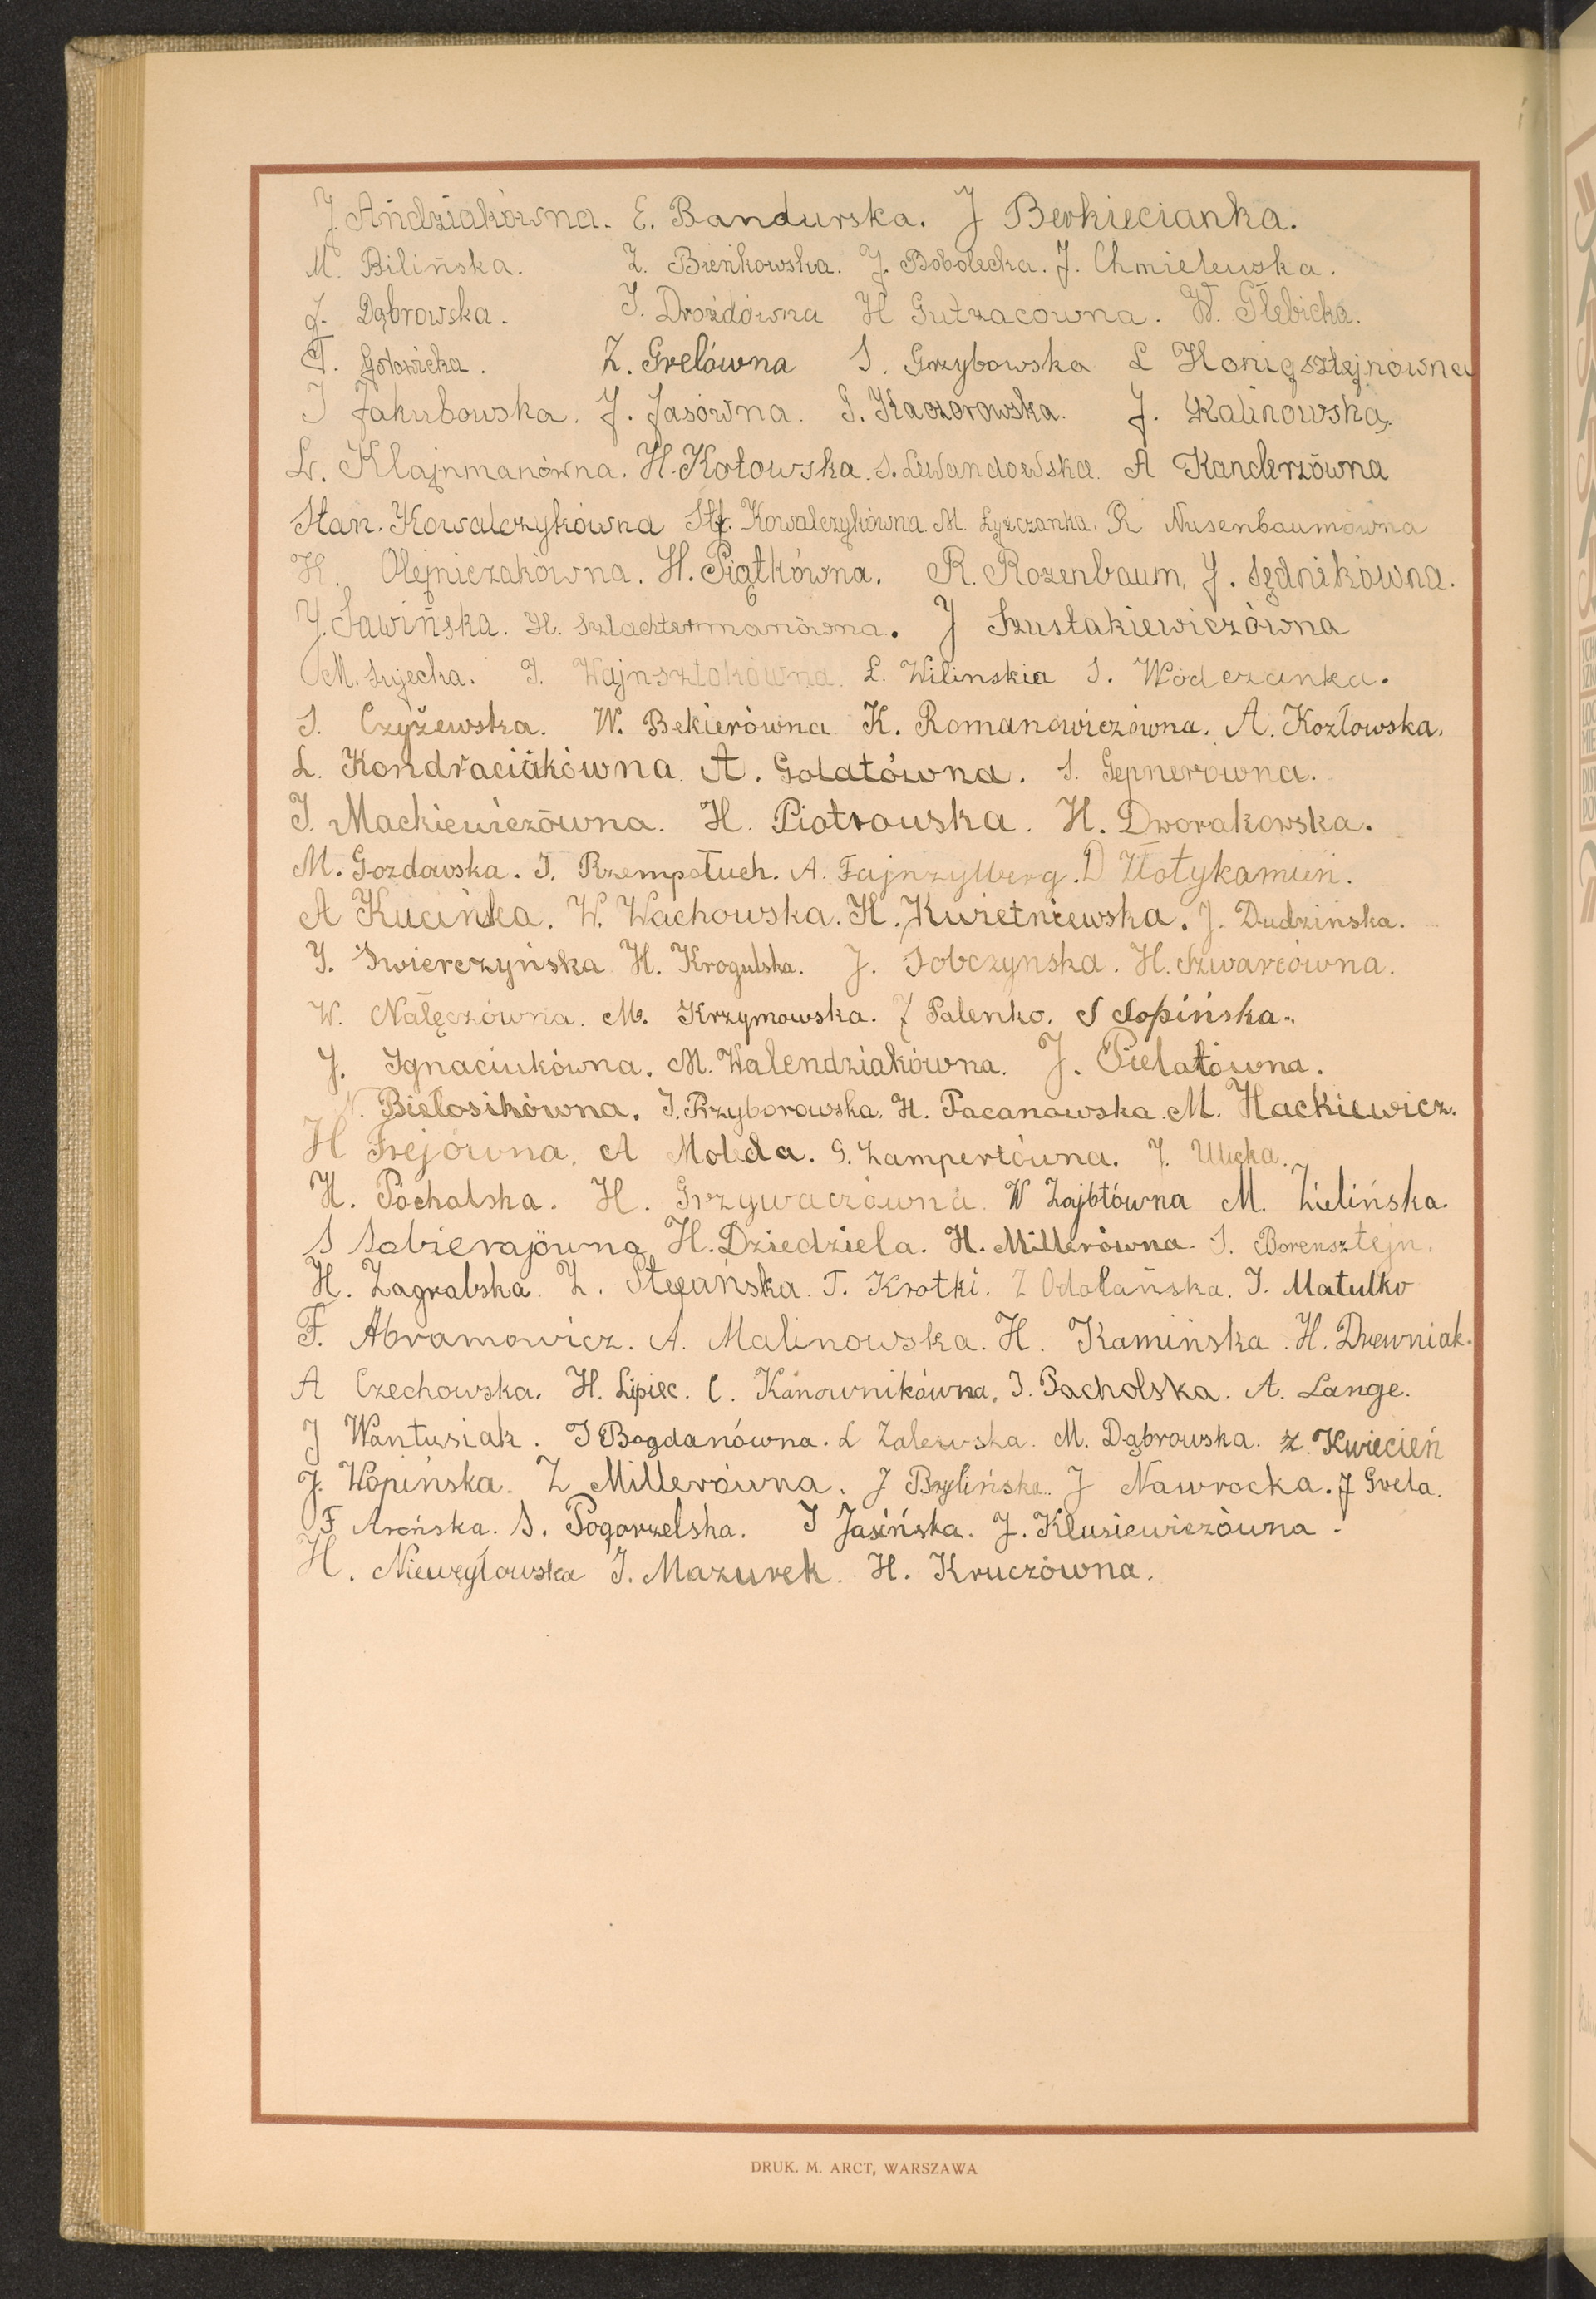 J. Andziakówna. E. Bandurska. J Berkiecianka.
M. Bilińska. Z. Bieńkowska. J. Bobolecka. J. Chmielewska.
J. Dąbrowska. I. Droździówna H Gutzacówna. W. Głębicka.
T. Gołowicka. Z. Grelówna S. Grzybowska L Honigsztejnówna
I Jakubowska. J. Jasówna. G. Kaczorowska. J. Kalinowska.
Ł. Klajnmanówna. H. Kołowska. S. Lewandowska. A Kanderzówna
Stan. Kowalczykówna Stf. Kowalczykówna. M. Łyżczanka. R Nusenbaumówna
H. Olejniczakówna. H. Piątkówna. R. Rozenbaum, J. Sędnikówna.
J. Sawińska. H. Szlachtermanówna. J Szustakiewiczówna
M. Sujecka. I. Wajnsztokówna. L. Wilinskia S. Wódczanka.
S. Czyżewska. W. Bekierówna K. Romanowiczówna. A. Kozłowska.
L. Kondraciakówna A. Golatówna. S. Gepnerówna.
I. Mackiewiczówna. H. Piotrowska. H. Dworakowska.
M. Gozdowska. I. Rzempołuch. A. Fajnzylberg. D Złotykamień.
A Kucińka. W. Wachowska. H. Kwietniewska. J. Dudzińska.
Y. Swierczyńska H. Krogulska. J. Sobczynska. H. Szwarcówna.
W. Nałęczówna. M. Krzymowska. J Palenko. S Sopińska.
J. Ignaciukówna. M. Walendziakówna. J. Pielatówna.
N. Bielosikówna. I. Przyborowska. H. Pacanowska. M. Hackiewicz.
H Frejówna. A Moleda. G. Lampertówna. J. Ulicka.
H. Pochalska. H. Grzywaczówna. W Zajbtówna M. Zielińska.
S Sobierajówna H. Dziedziela. H. Millerówna. S. Borensztejn.
H. Zagrabska. Z. Stegańska. T. Krotki. Z Odolańska. I. Matulko
F. Abramowicz. A. Malinowska. H. Kamińska. H. Drewniak.
A Czechowska. H. Lipiec. C. Kanownikówna. I. Pacholska. A. Lange.
J Wantusiak. I Bogdanówna. L Zalewska. M. Dąbrowska. Z. Kwiecień
J. Wopińska. Z Millerówna. J Brylińska. J Nawrocka. J Grela.
F Arońska. S. Pogorzelska. I Jasińska. J. Klusiewiczówna.
H. Niewęgłowska I. Mazurek. H. Kruczówna.
DRUK. M. ARCT, WARSZAWA